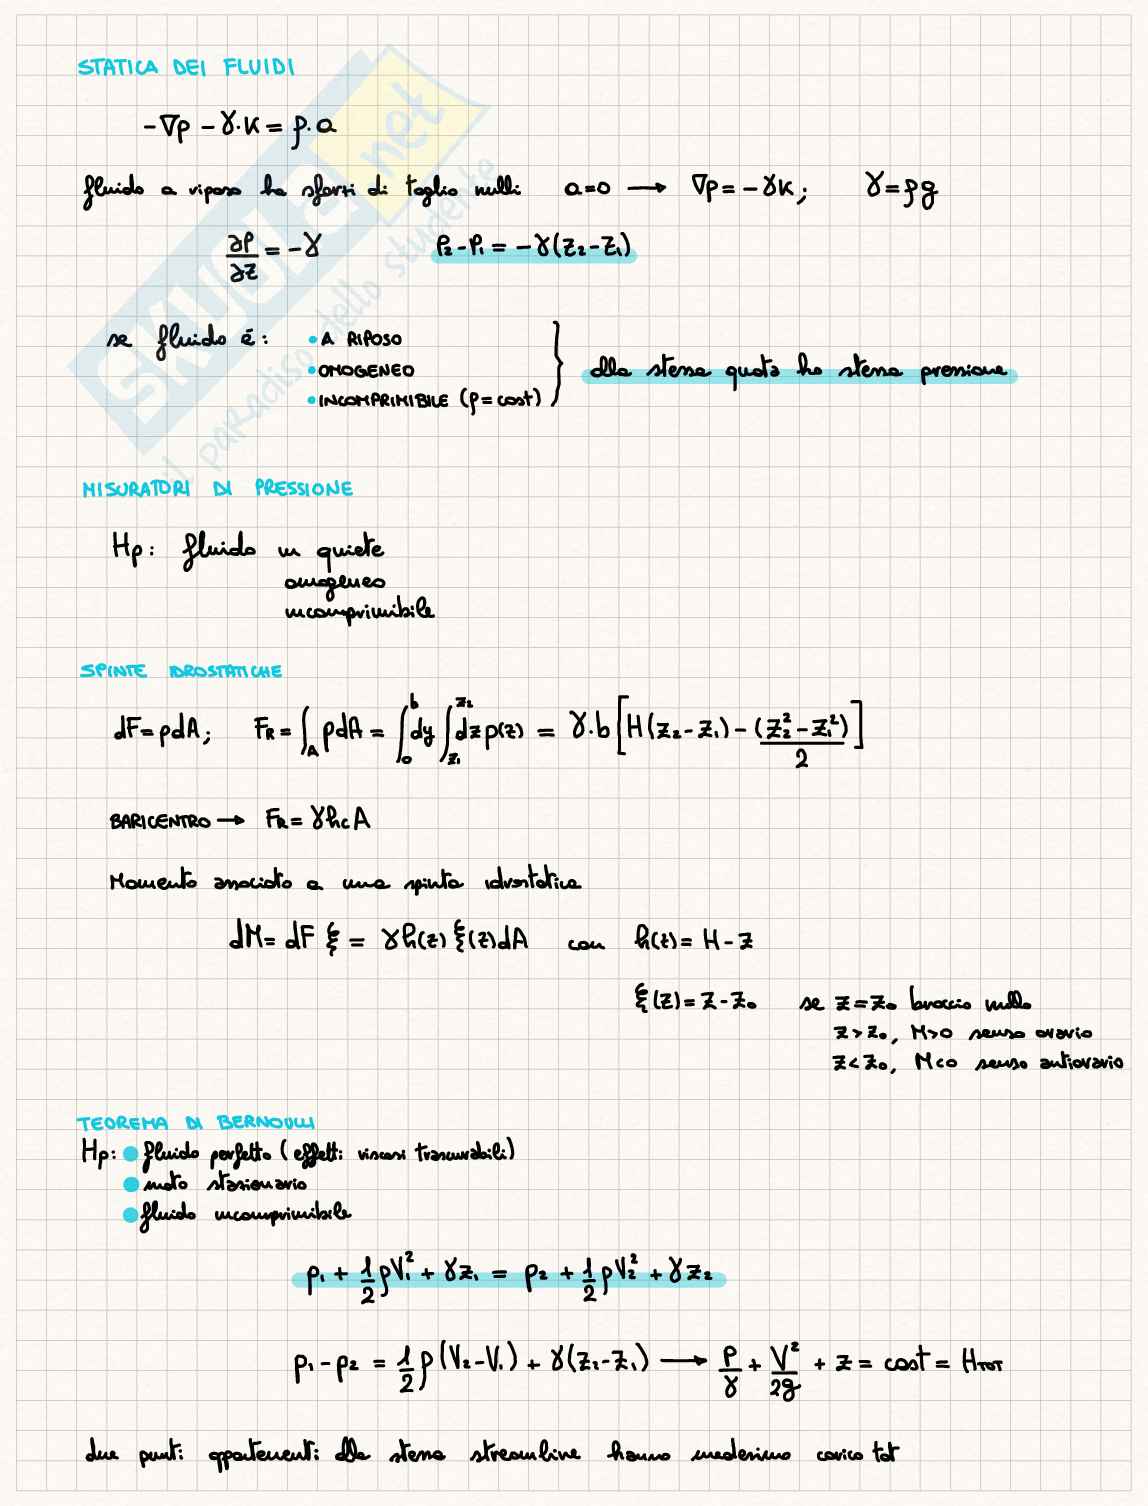 STATICA DEI FLUIDI
-∇p - γ·K = ρ·a
fluido a riposo ha sforzi di taglio nulli a=0 → ∇p = -γK; γ=ρg
∂P/∂z = -γ P₂-P₁ = -γ(z₂-z₁)
se fluido é: • A RIPOSO
• OMOGENEO } alla stessa quota ho stessa pressione
• INCOMPRIMIBILE (ρ=cost)
MISURATORI DI PRESSIONE
Hp: fluido in quiete
omogeneo
incomprimibile
SPINTE IDROSTATICHE
dF=pdA; F_R = ∫_A pdA = ∫₀ᵇ dy ∫_{z₁}^{z₂} dz p(z) = γ·b [H(z₂-z₁) - (z₂²-z₁²)/2]
BARICENTRO → F_R = γh_cA
Momento associato a una spinta idrostatica
dM = dF ξ = γh(z) ξ(z)dA con h(z) = H - z
ξ(z) = z - z₀ se z = z₀ braccio nullo
z > z₀, M>0 senso orario
z < z₀, M<0 senso antiorario
TEOREMA DI BERNOULLI
Hp: • fluido perfetto (effetti viscosi trascurabili)
• moto stazionario
• fluido incomprimibile
p₁ + 1/2 ρV₁² + γz₁ = p₂ + 1/2 ρV₂² + γz₂
p₁ - p₂ = 1/2 ρ(V₂-V₁) + γ(z₂-z₁) → P/γ + V²/2g + z = cost = H_TOT
due punti appartenenti alla stessa streamline hanno medesimo carico tot
SKUOLA.net
il paradiso dello studente